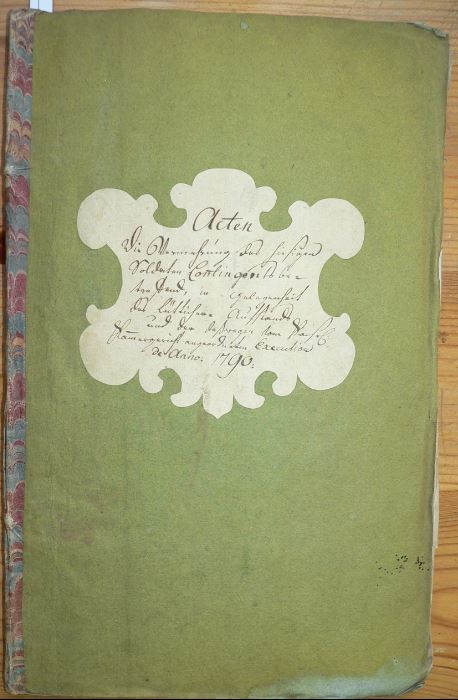 Acten
Die Vermehrung des hiesigen
Soldaten Contingents be-
treffend, in Gelegenheit
des Lütticher Aufstands
und der deswegen vom Kaÿserl.
Kammergericht angeordneten Execution
de Anno: 1790.